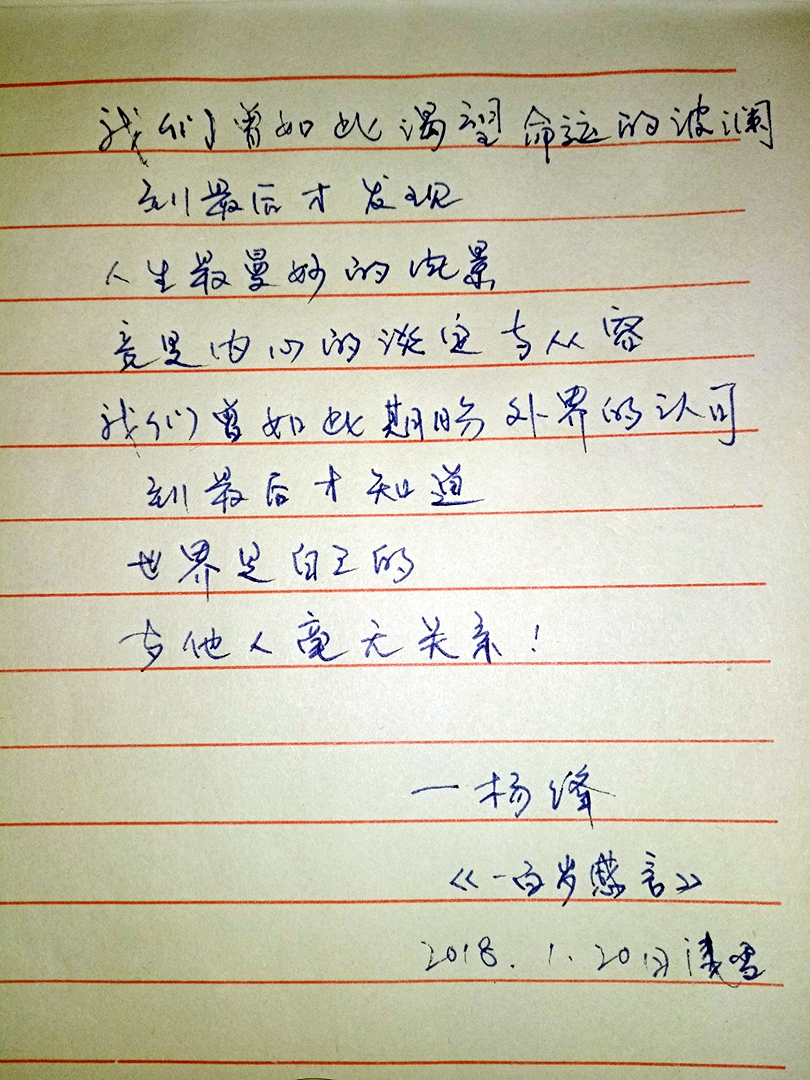 我们曾如此渴望命运的波澜
到最后才发现
人生最曼妙的风景
竟是内心的淡定与从容
我们曾如此期盼外界的认可
到最后才知道
世界是自己的
与他人毫无关系！
一杨绛
《一百岁感言》
2018.1.20日